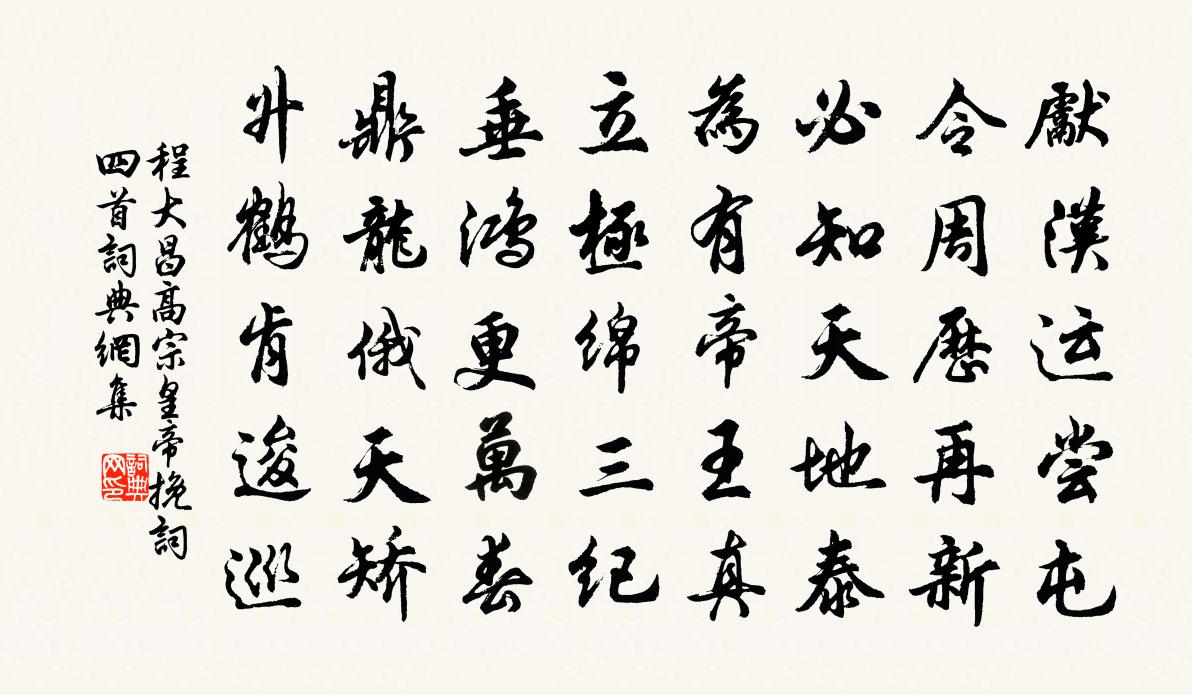 獻漢运尝屯
令周歷再新
必知天地泰
為有帝王真
立極绵三纪
垂鸿更萬春
鼎龍俄天矫
升鶴肯逡巡
程大昌高宗皇帝挽詞
四首詞典網集
詞典
网印